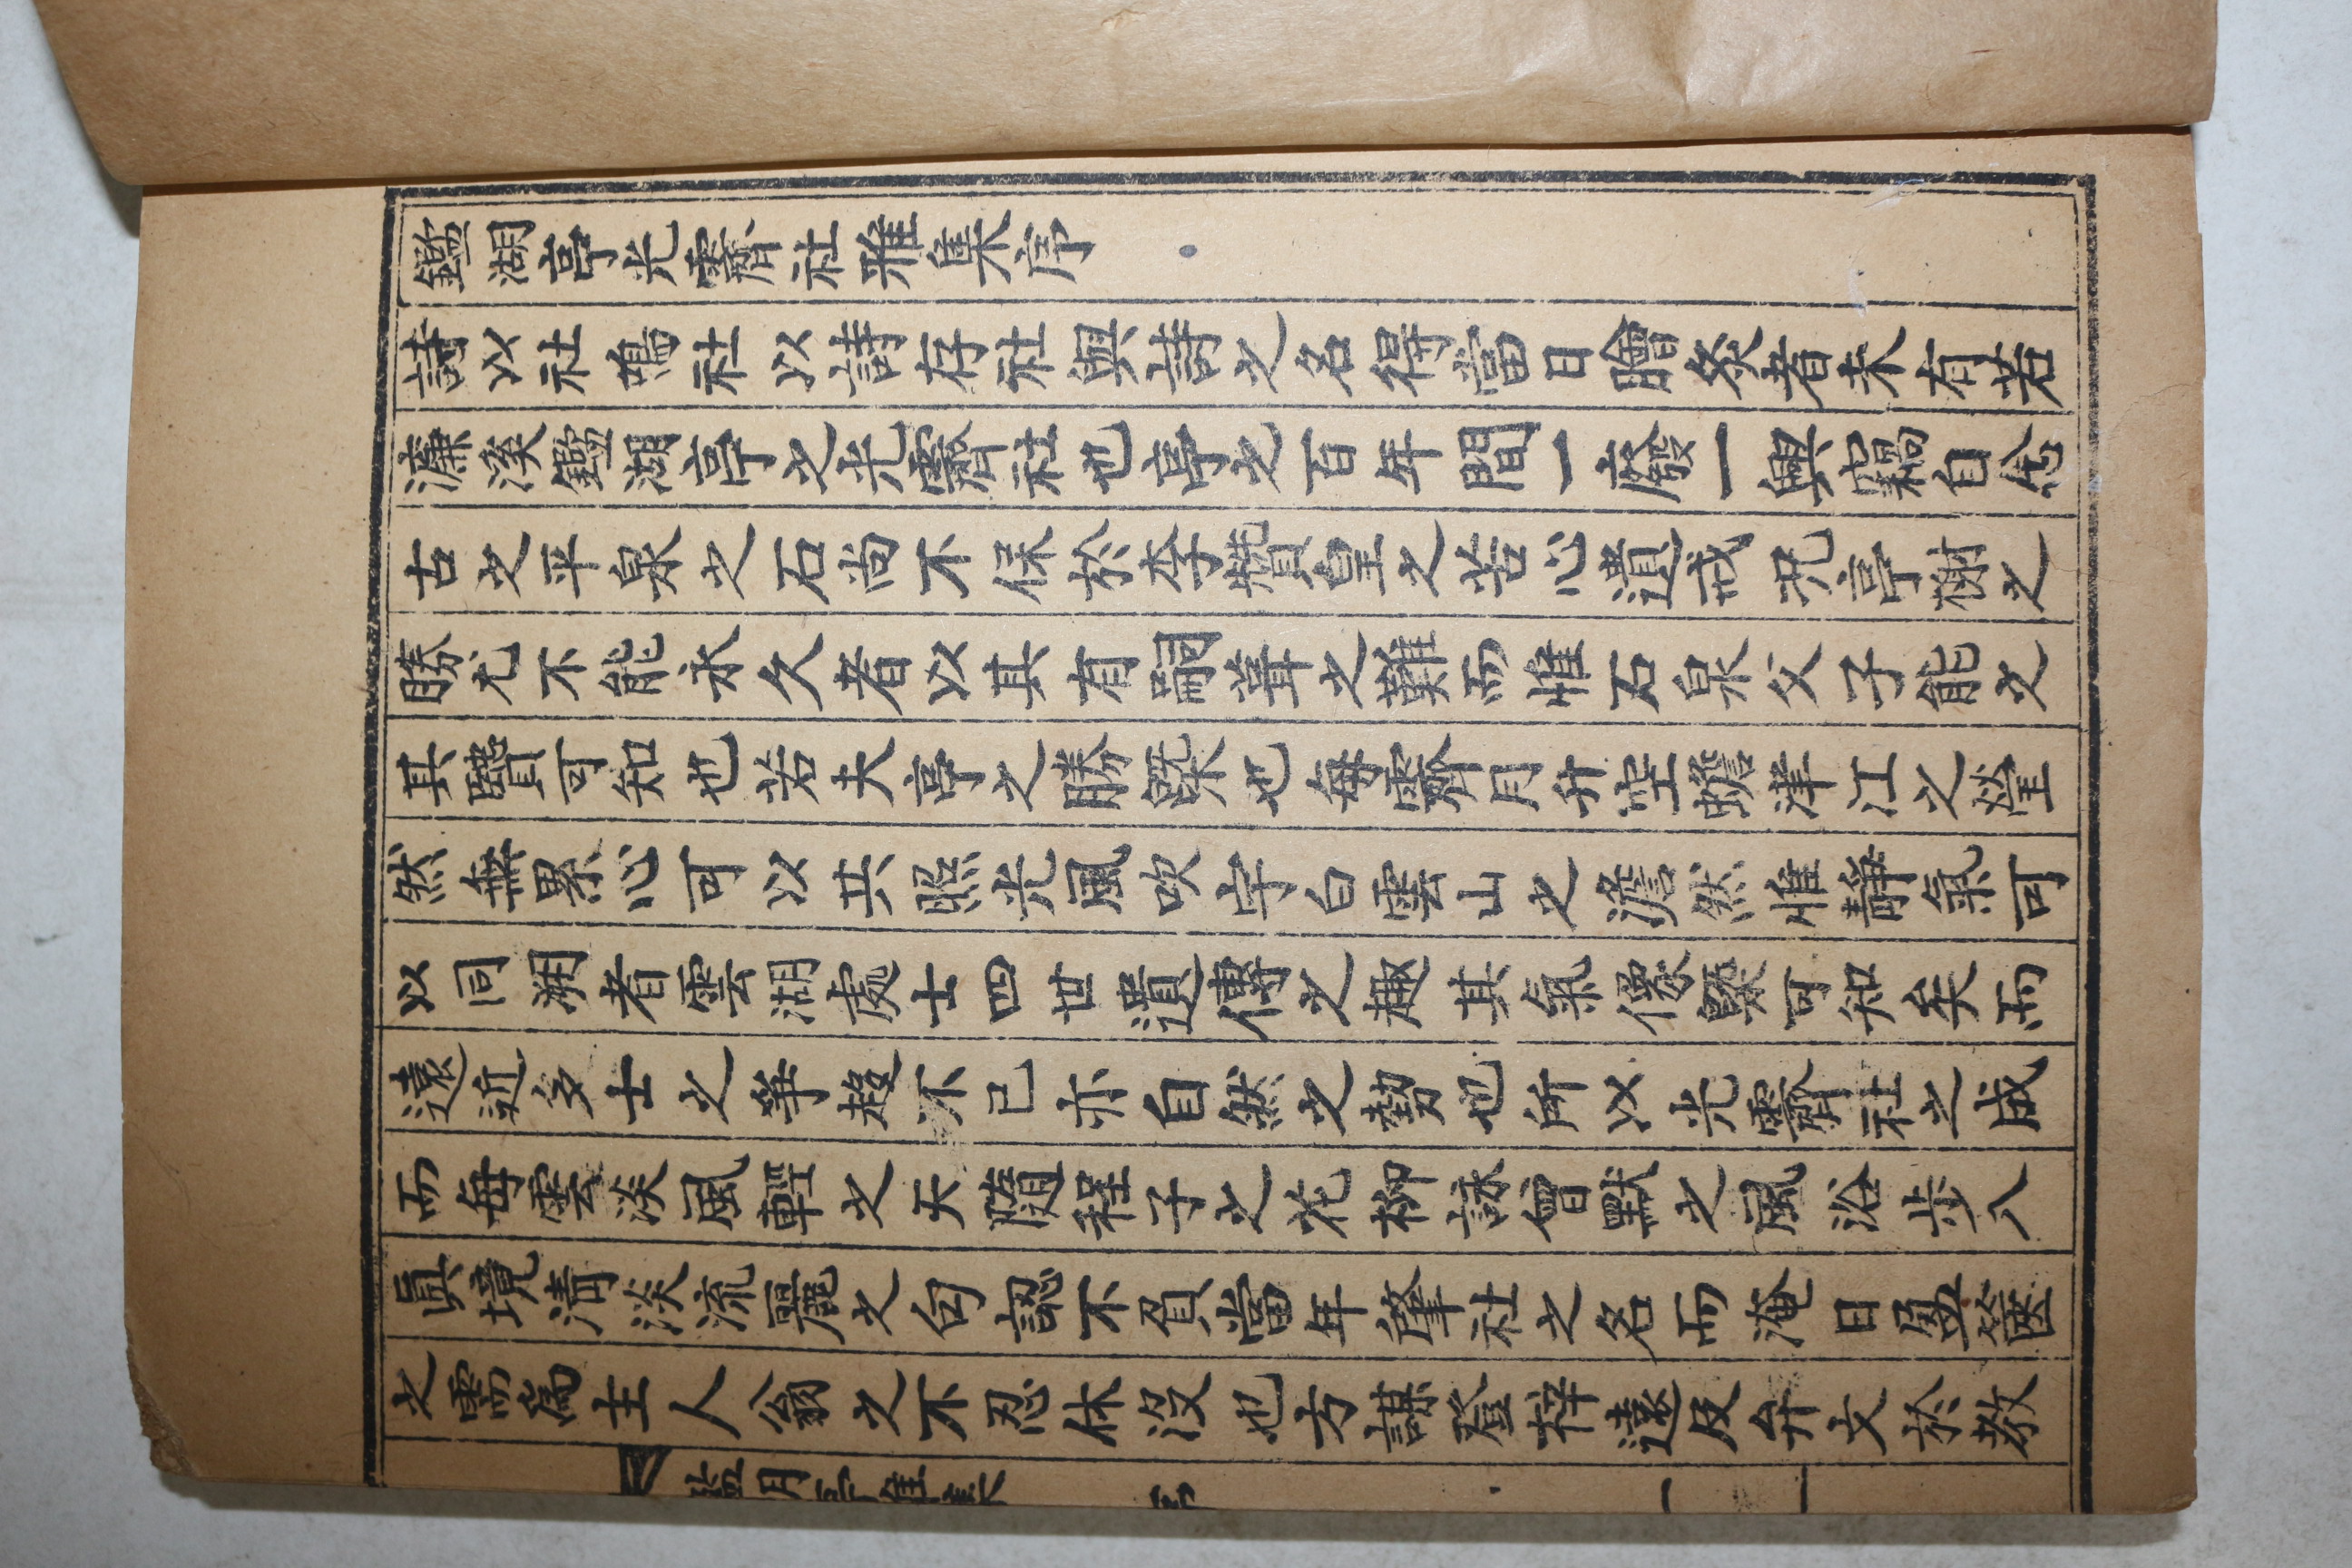 鑑湖亭光霽社雅集序
詩以社鳴社以詩存社與詩之名得當日膾炙者未有若
濂溪鑑湖亭之光霽社也亭之百年間一廢一興竊自念
古之平泉之石尚不保於李贊皇之苦心遺戒況亭榭之
勝尤不能永久者以其有嗣葺之難而惟石泉父子能之
其賢可知也若夫亭之勝槩也每霽月升空蟾津江之瑩
然無累心可以共照光風吹宇白雲山之澹然惟靜氣可
以同溯者雲湖處士四世遺傳之趣其氣像槩可知矣而
遠近多士之爭趍不已亦自然之勢也所以光霽社之成
而每雲淡風輕之天隨程子之花柳詠曾默之風浴步八
眞境淸淡流麗之句認不負當年肇社之名而淹日盈篋
之需爲主人翁之不忍休沒也方謀登梓遠及弁文於教
鑑湖亭雅集 序 一